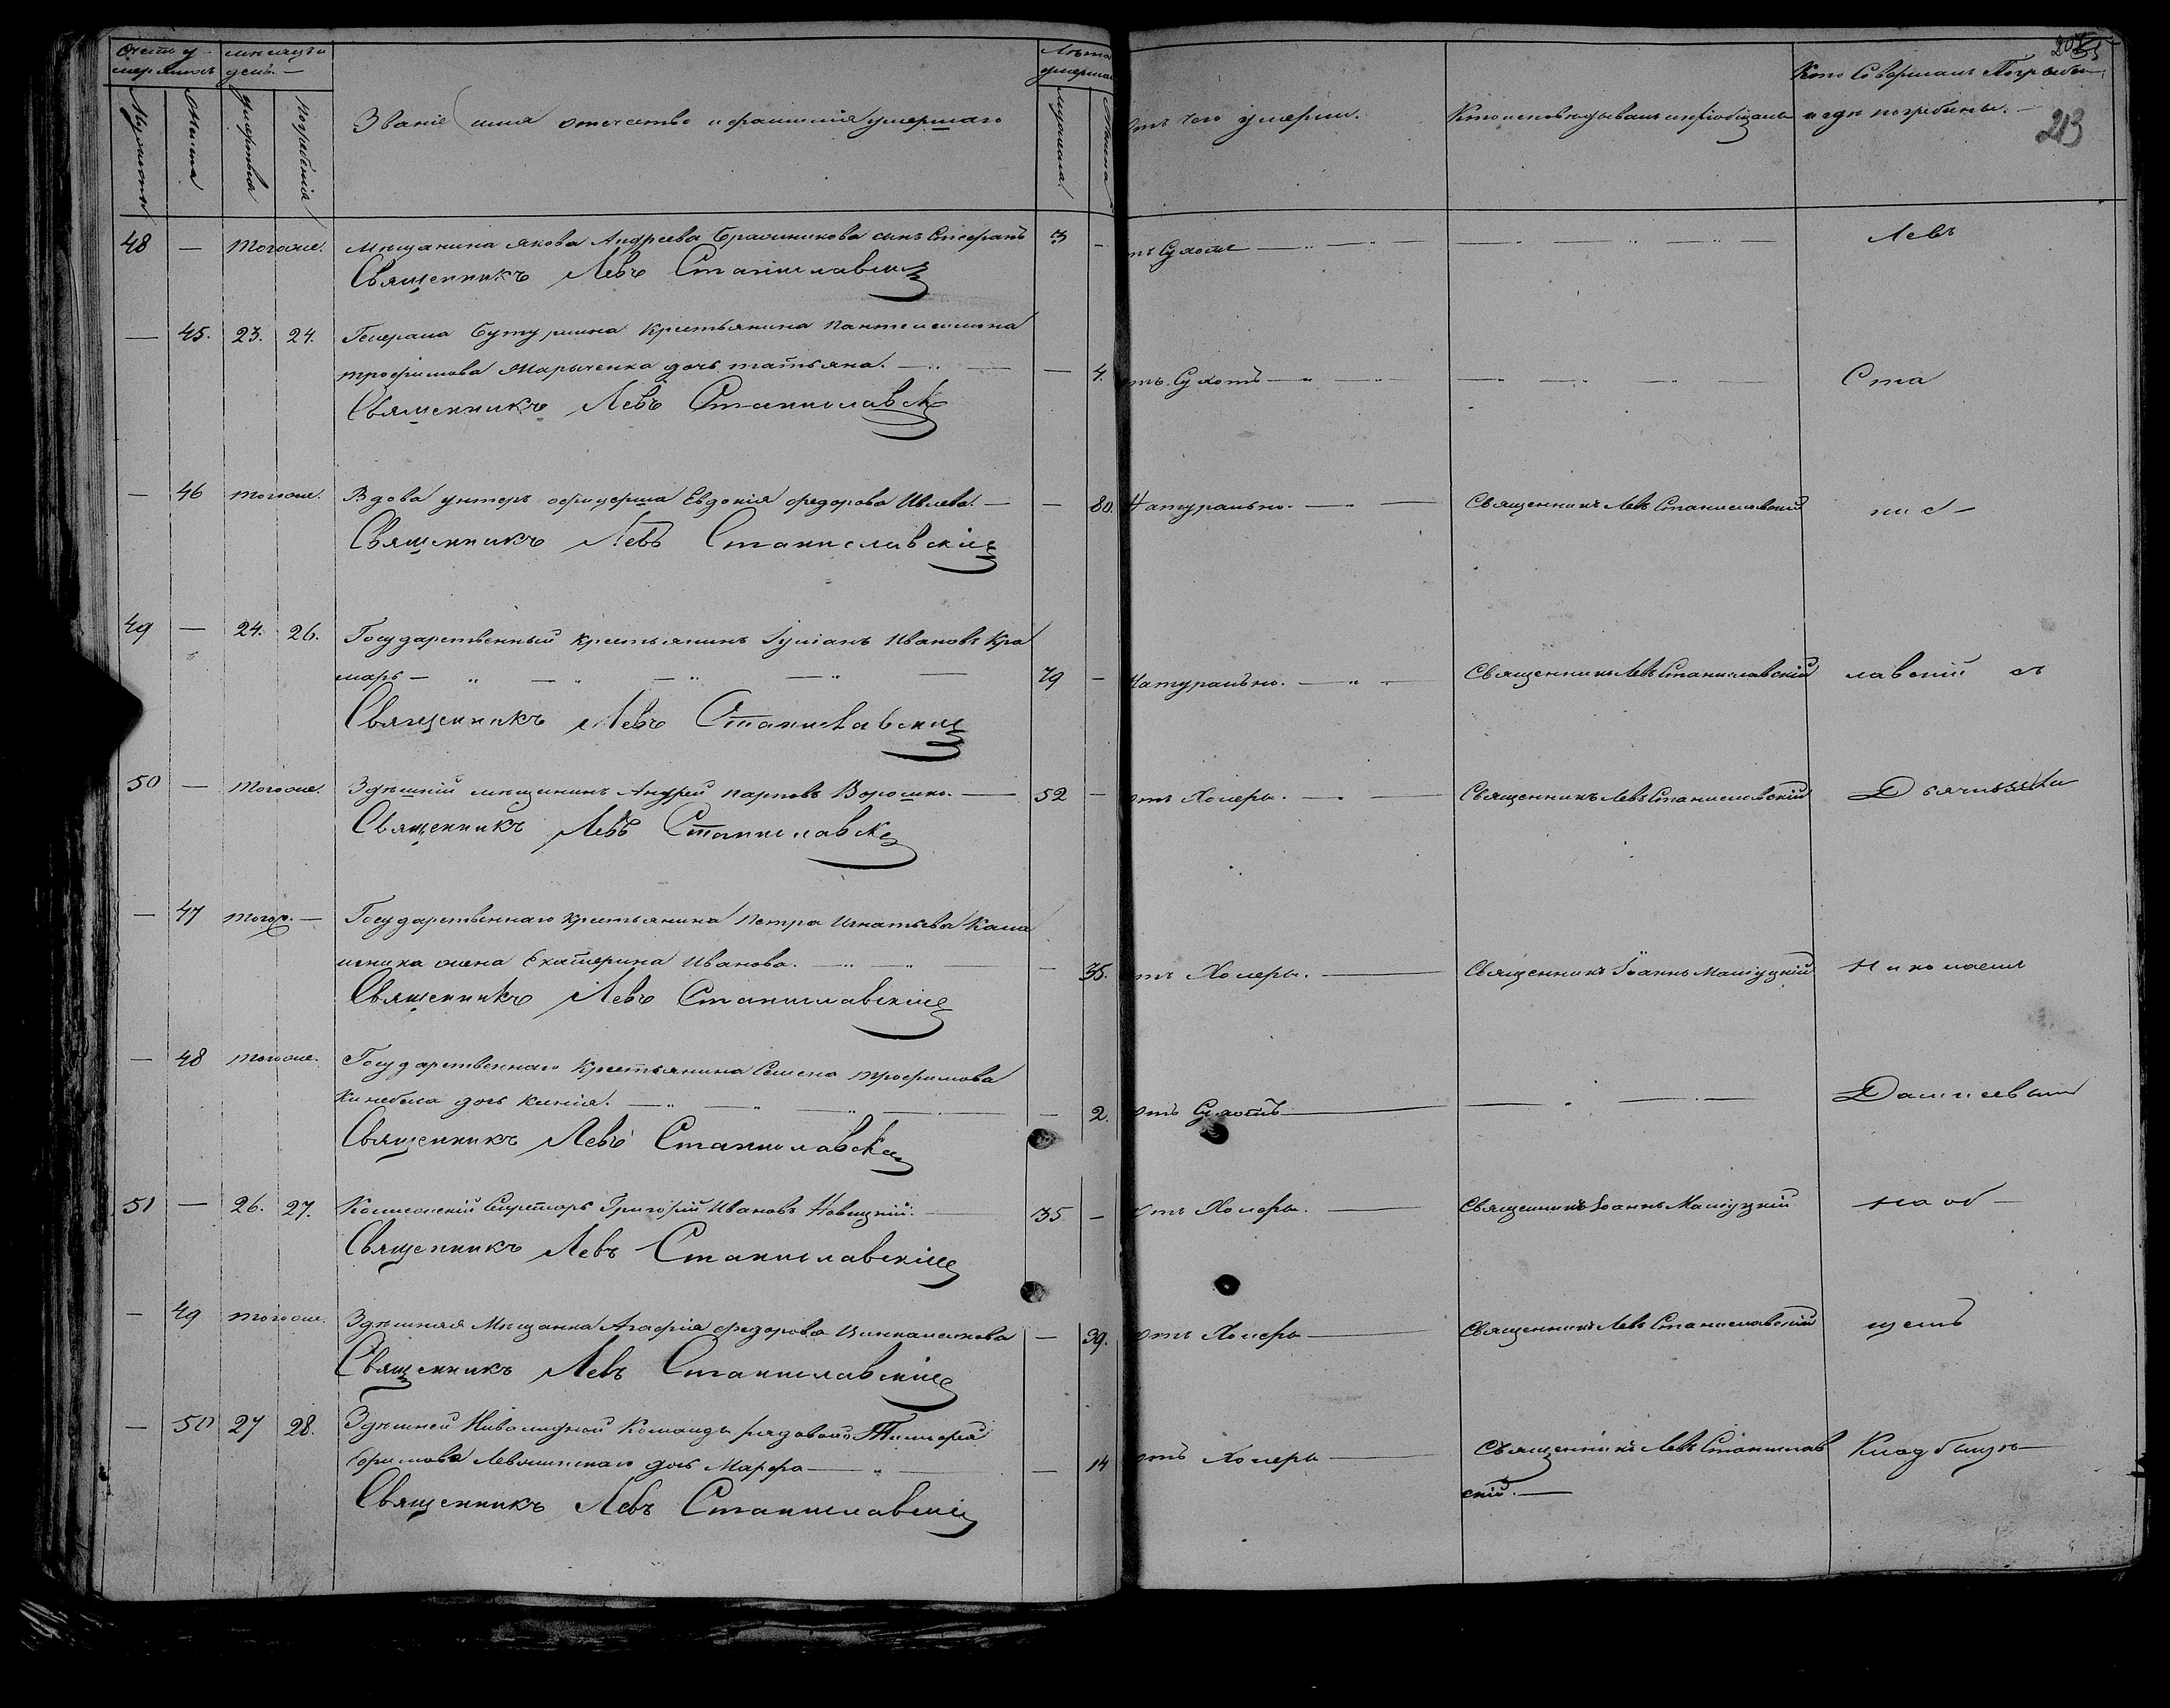 Счетъ у- мѣсяцъ и
мершихъ день. —
Мужеска Женска Смертный Погребенія
Званіе имя отечество и фамилія умершаго
Лѣта умершаго
Мужеска Женска
Отъ чего умерли.
Кто исповѣдывалъ и пріобщалъ
Кто Совершалъ Погребеніе
и гдѣ погребены. —
213
48 — Тогоже. Мѣщанина Якова Андреева сынъ Стефанъ 3 — отъ Сухотъ Левъ
Священникъ Левъ Станиславскій
— 45. 23. 24. Генерала Бутурлина Крестьянина Пантелеимона
Трофимова Марыченка дочь татьяна. — 4. отъ Сухотъ Ста
Священникъ Левъ Станиславскій
— 46 тогоже. Вдова унтеръ офицерша Евдокія Федорова Ивлева. — 80. Натурально. Священникъ Левъ Станиславскій нис-
Священникъ Левъ Станиславскій
49 — 24. 26. Государственный крестьянинъ Іуліанъ Ивановъ Кра
маръ — 79 — Натурально. Священникъ Левъ Станиславскій лавскій съ
Священникъ Левъ Станиславскій
50 — тогоже. Здѣшній мѣщанинъ Андрей Карповъ Ворошко. — 52 — отъ Холеры. Священникъ Левъ Станиславскій
Священникъ Левъ Станиславскій
— 47 тогож. — Государственнаго крестьянина Петра Игнатьева
жена Екатерина Иванова. — 35. отъ Холеры. Священникъ Іоаннъ Николаемъ
Священникъ Левъ Станиславскій
— 48 тогоже. Государственнаго Крестьянина Семена Трофимова
дочь — 2. отъ Сухотъ
Священникъ Левъ Станиславскій
51 — 26. 27. Коллежскій Секретарь Григорій Ивановъ Новицкій. 35 — отъ Холеры. Священникъ Іоаннъ на об-
Священникъ Левъ Станиславскій
— 49 тогоже. Здѣшняя Мѣщанка Агафія Федорова — 39. отъ Холеры Священникъ Левъ Станиславскій щемъ
Священникъ Левъ Станиславскій
— 50 27 28. Здѣшней Инвалидной Команды рядоваго
дочь Марфа — 14 отъ Холеры Священникъ Левъ Станислав Кладбищѣ
скій. —
Священникъ Левъ Станиславскій